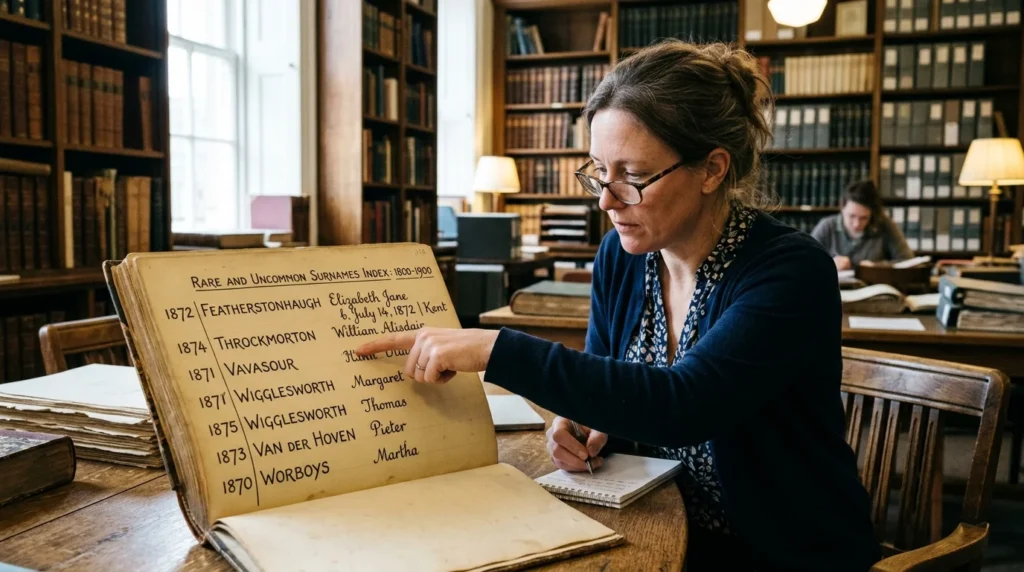 RARE AND UNCOMMON SURNAMES INDEX: 1800-1900
1872 FEATHERSTONHAUGH Elizabeth Jane
6 July 14, 1872 | Kent
1874 THROCKMORTON William Alisdair
1871 VAVASOUR
1871 WIGGLESWORTH Margaret
1875 WIGGLESWORTH Thomas
1873 VAN DER HOVEN Pieter
1870 WORBOYS Martha